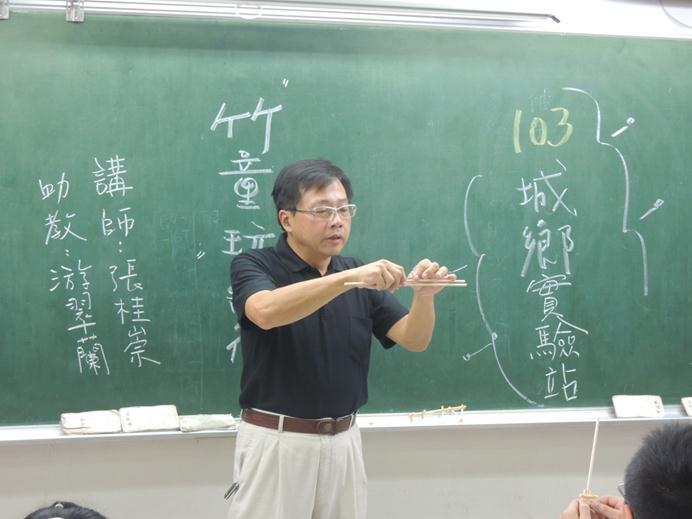 103
城鄉實驗站
竹童玩
講師：張桂崇
助教：游翠蘭